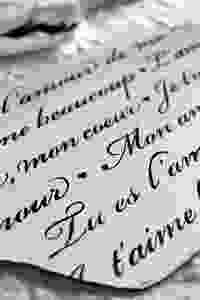 l'amour de
me beaucoup • J
, mon coeur • Je t
mour • Mon am
Tu es l'am
t'aime